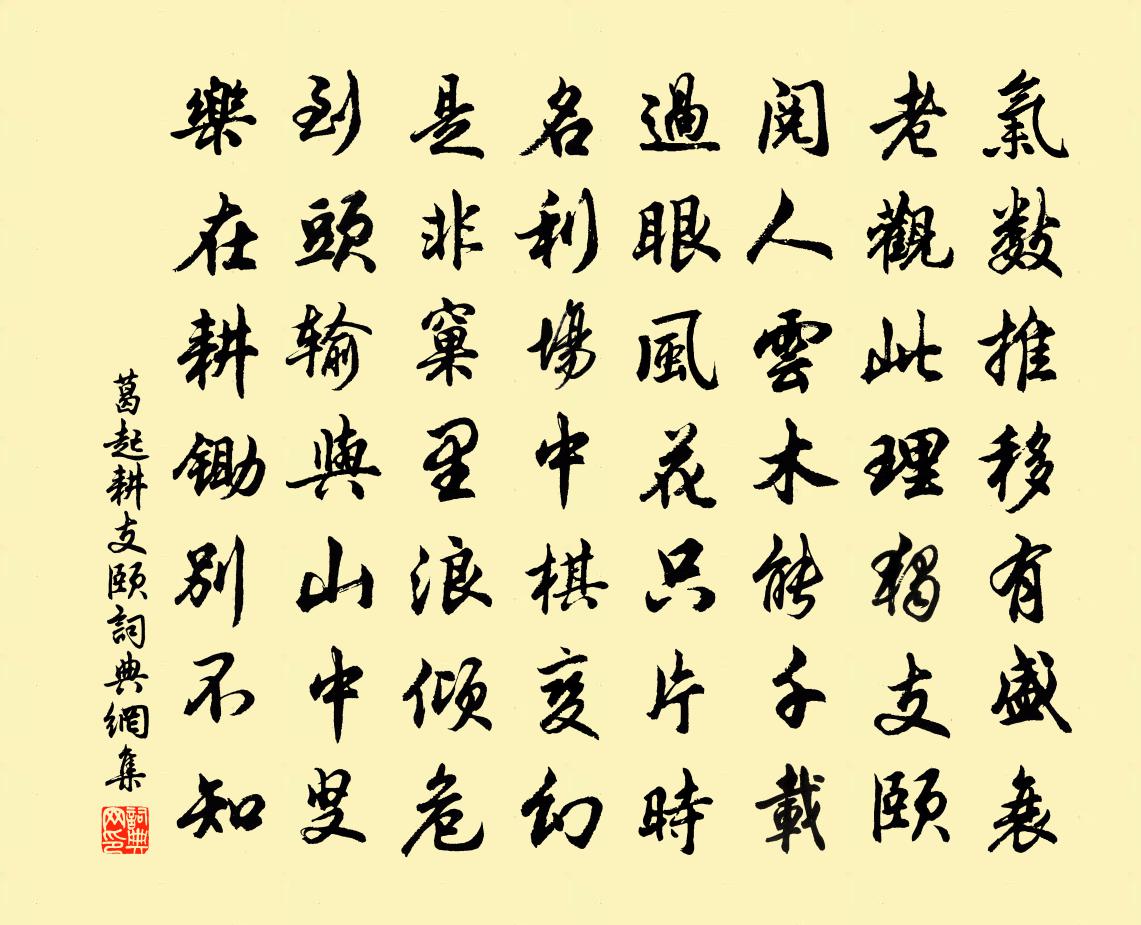 氣數推移有盛衰
老觀此理獨支頤
閱人雲木能千載
過眼風花只片時
名利場中棋變幻
是非窠里浪傾危
到頭输與山中叟
樂在耕鋤別不知
葛起耕支頤詞典網集
詞典网印